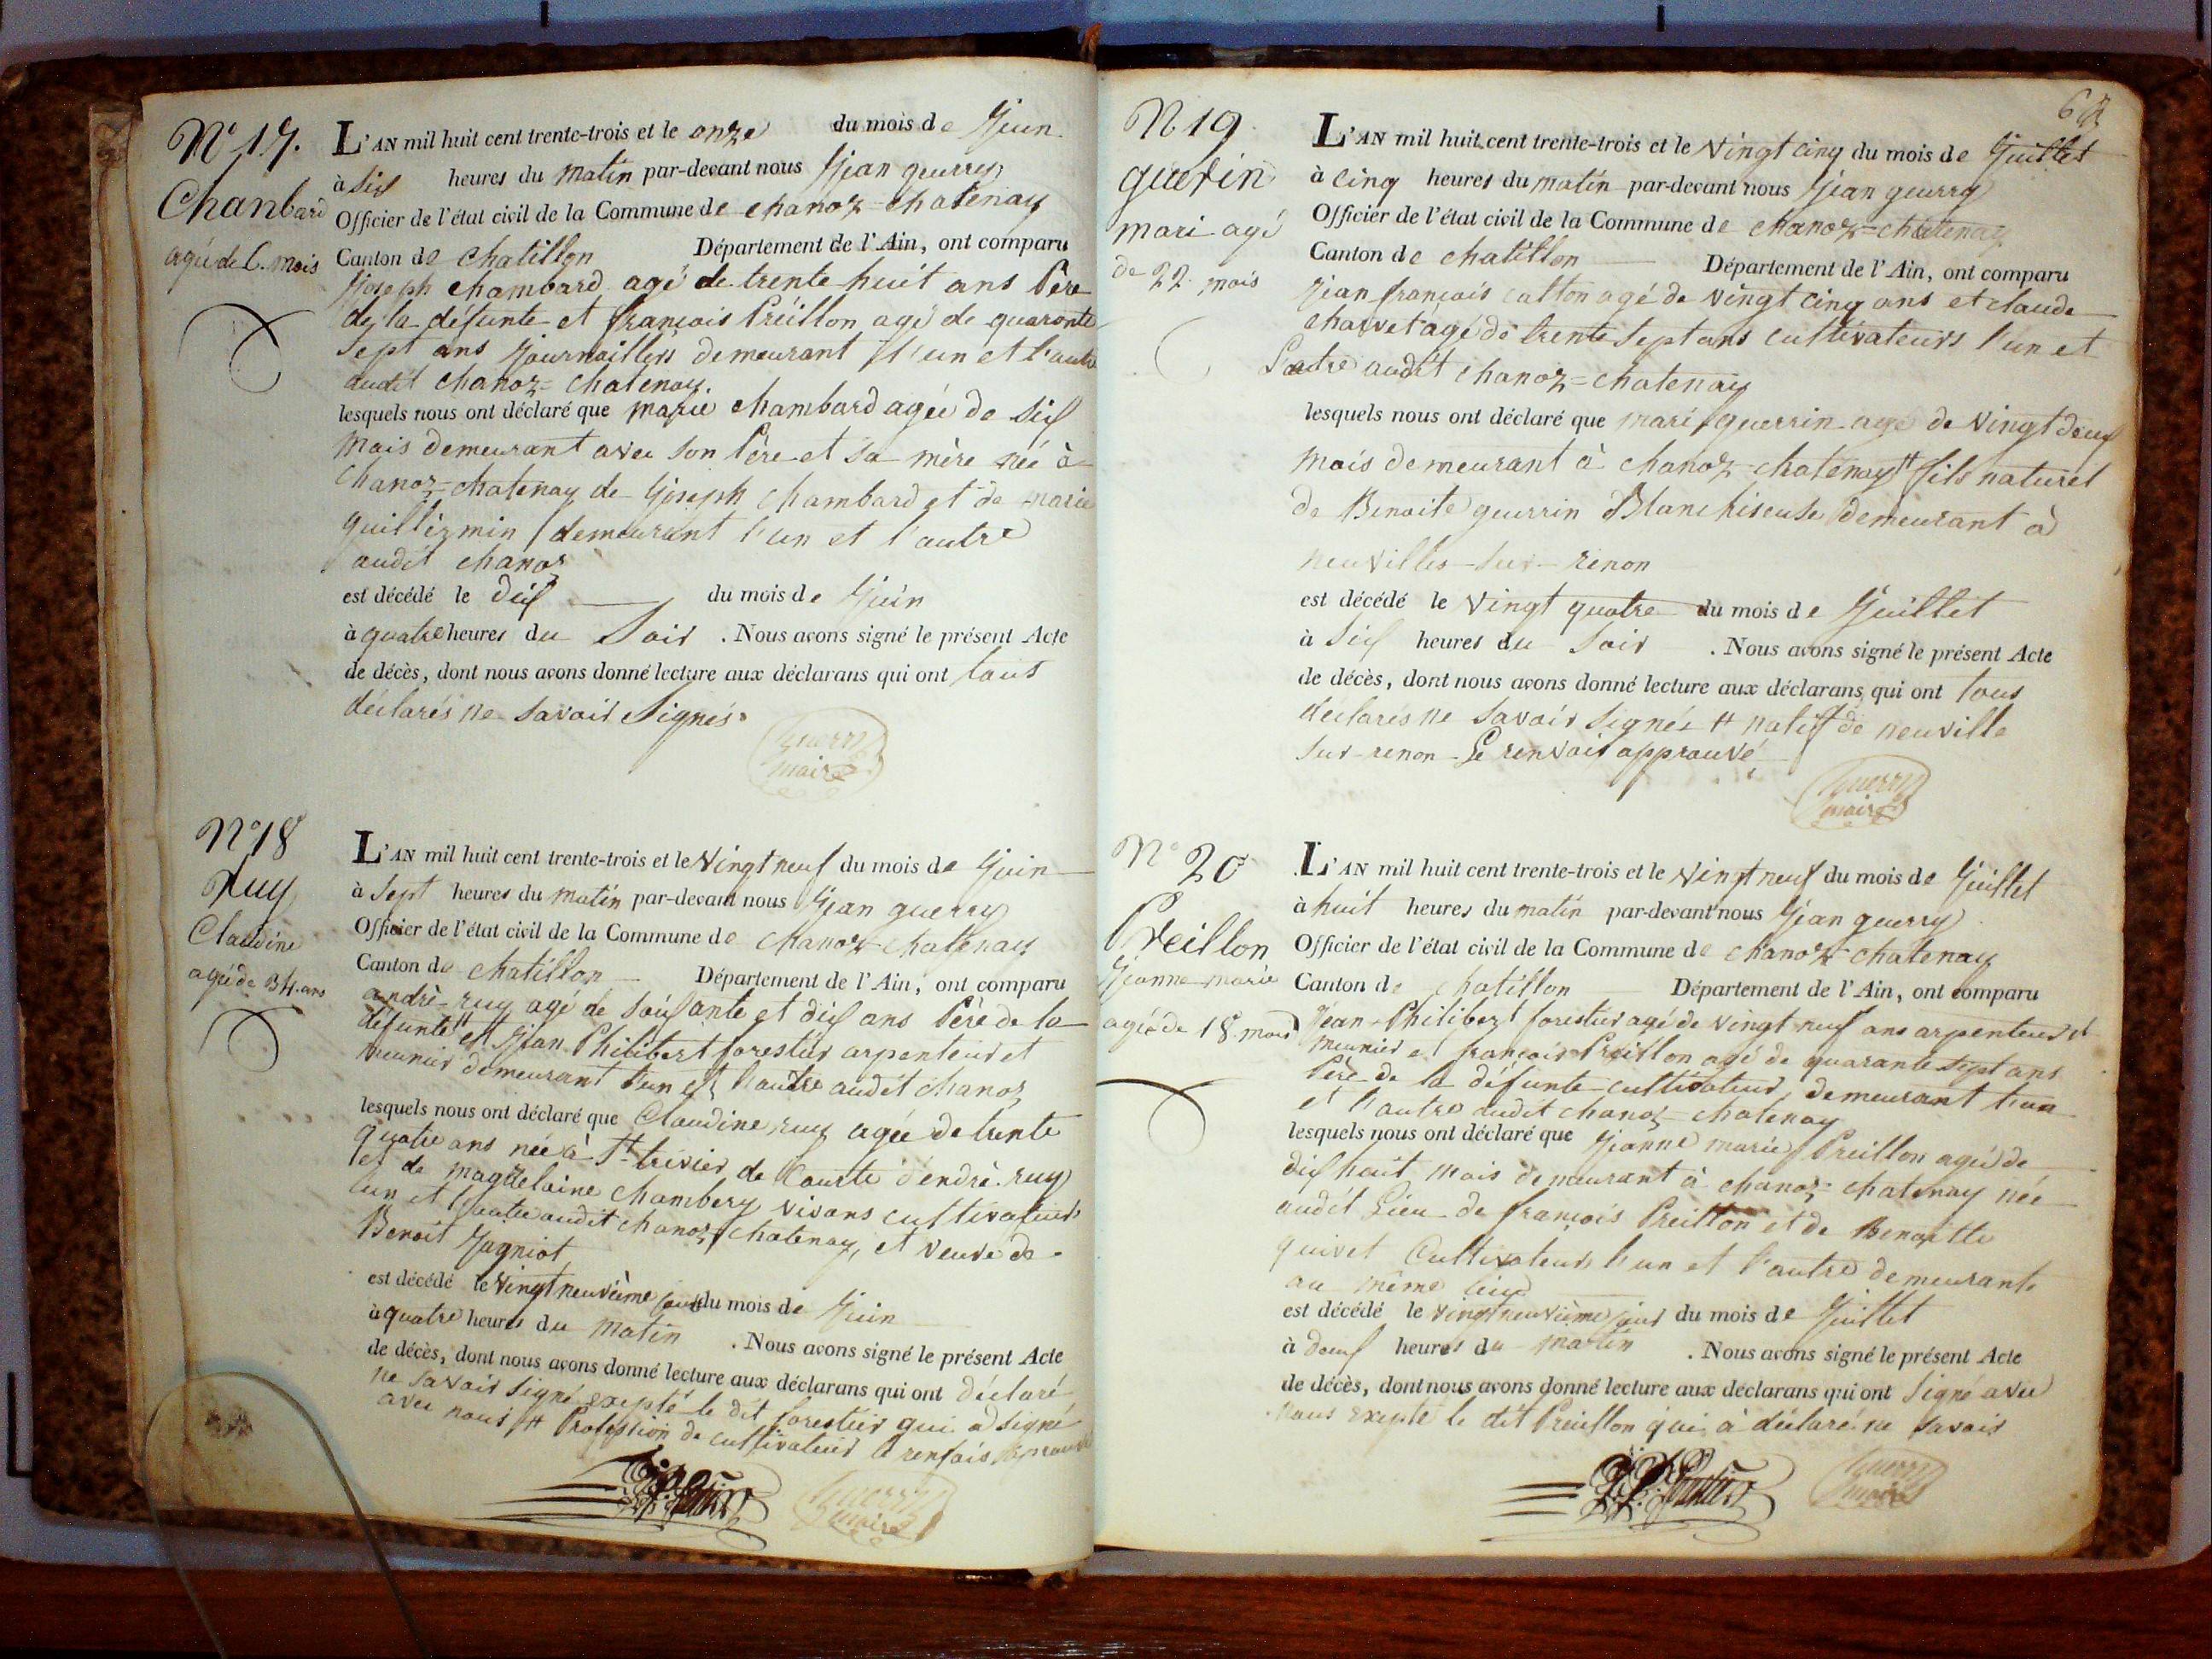 N° 17.
Chanbard
agée de 6. mois
L'AN mil huit cent trente-trois et le onze du mois de Juin
à six heures du matin par-devant nous Jean guerry
Officier de l'état civil de la Commune de chanoz=chatenay
Canton de chatillon Département de l'Ain, ont comparu
Joseph chambard agé de trente huit ans Père
de la défunte et françois Préillon agé de quarante
sept ans Journailliers demeurant l'un et l'autre
audit chanoz=chatenay.
lesquels nous ont déclaré que marie chambard agée de six
mois demeurant avec son Père et sa mère née à
chanoz=chatenay de Joseph chambard et de marie
guillermin demeurant l'un et l'autre
audit chanoz
est décédé le dix du mois de Juin
à quatre heures du Soir . Nous avons signé le présent Acte
de décès, dont nous avons donné lecture aux déclarans qui ont tous
déclarés ne savoir Signés.
Guerry
maire
N° 18
Ruy
Claudine
agée de 34. ans
L'AN mil huit cent trente-trois et le Vingt neuf du mois de Juin
à Sept heures du matin par-devant nous Jean guerry
Officier de l'état civil de la Commune de chanoz-chatenay
Canton de chatillon Département de l'Ain, ont comparu
andrè ruy agé de soixante et dix ans Père de la
défunte # et Jean Philibert forestier arpenteur et
meunier demeurant l'un et l'autre audit chanoz
lesquels nous ont déclaré que Claudine ruy agée de trente
quatre ans née à St trivier de Courte d'endrè ruy
et de magdelaine chambery vivans cultivateurs
l'un et l'autre audit chanoz chatenay, et veuve de
Benoit Jagniot
est décédé le Vingt neuvième jour du mois de Juin
à quatre heures du matin . Nous avons signé le présent Acte
de décès, dont nous avons donné lecture aux déclarans qui ont déclaré
ne savoir signé exepté le dit forestier qui a signé
avec nous # Profession de cultivateur le renvois
Guerry
maire
N 19
guerin
mari agé
de 22. mois
L'AN mil huit cent trente-trois et le Vingt cinq du mois de Juillet
à cinq heures du matin par-devant nous Jean guerry
Officier de l'état civil de la Commune de chanoz=chatenay
Canton de chatillon Département de l'Ain, ont comparu
Jean françois catton agé de vingt cinq ans et claude
charvet agé de trente sept ans cultivateurs l'un et
l'autre audit chanoz=chatenay
lesquels nous ont déclaré que mari guerrin agé de Vingt deux
mois demeurant à chanoz-chatenay # fils naturel
de Benoite guerrin Blanchiseuse demeurant à
neuvilles-sur-renon
est décédé le Vingt quatre du mois de Juillet
à Six heures du Soir . Nous avons signé le présent Acte
de décès, dont nous avons donné lecture aux déclarans qui ont tous
déclarés ne savoir signés # natif de neuville
sur-renon Le renvois approuvé
Guerry
maire
N° 20
Preillon
Jeanne marie
agée de 18. mois
L'AN mil huit cent trente-trois et le Vingt neuf du mois de Juillet
à huit heures du matin par-devant nous Jean guerry
Officier de l'état civil de la Commune de chanoz-chatenay
Canton de chatillon Département de l'Ain, ont comparu
Jean-Philibert forestier agé de vingt neuf ans arpenteur et
meunier et françois Preillon agé de quarante sept ans
Père de la défunte cultivateur, demeurant l'un
et l'autre audit chanoz-chatenay
lesquels nous ont déclaré que Jeanne marie Preillon agée de
dix huit mois demeurant à chanoz-chatenay née
audit Lieu de françois Preillon et de Benoitte
guivet Cultivateurs l'un et l'autre demeurants
au même lieu
est décédé le vingt neuvième jour du mois de Juillet
à deux heures du matin . Nous avons signé le présent Acte
de décès, dont nous avons donné lecture aux déclarans qui ont Signé avec
nous exepté le dit Preillon qui à déclaré ne savoir
Guerry
maire